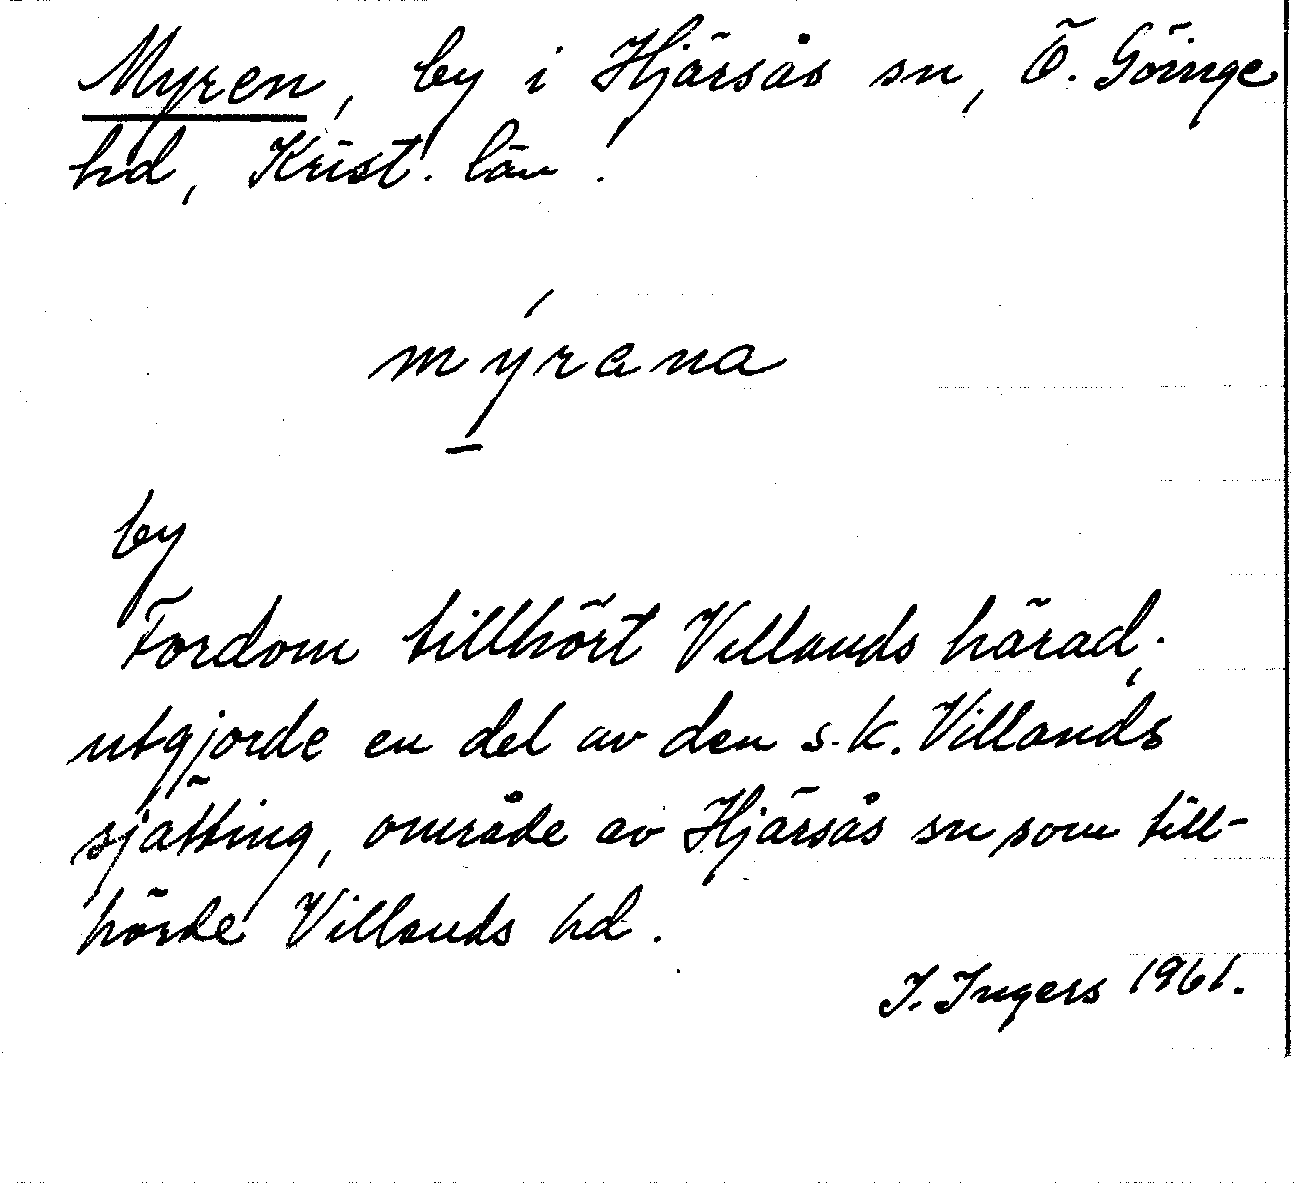 Myren, by i Hjärsås sn, Ö. Göinge
hd, Krist. län.
mýrana
by
Fordom tillhört Villands härad;
utgjorde en del av den s.k. Villands
sjätting, område av Hjärsås sn som till-
hörde Villands hd.
I. Ingers 1961.